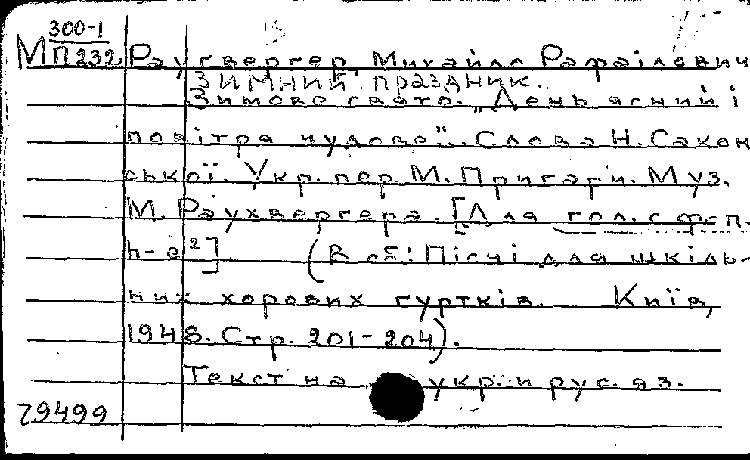 300-1
М П232 Раухвергер, Михайло Рафаілович
Зимний праздник.
Зимове свято. „День ясний і
повітря чудове". Слова Н. Сакон-
ської. Укр. пер. М. Пригари. Муз.
М. Раухвергера. [Для гол. с ф-п.
h-e²] (В сб: Пісні для шкіль-
них хорових гуртків. Київ,
1948. Стр. 201-204).
Текст на укр. и рус. яз.
79499